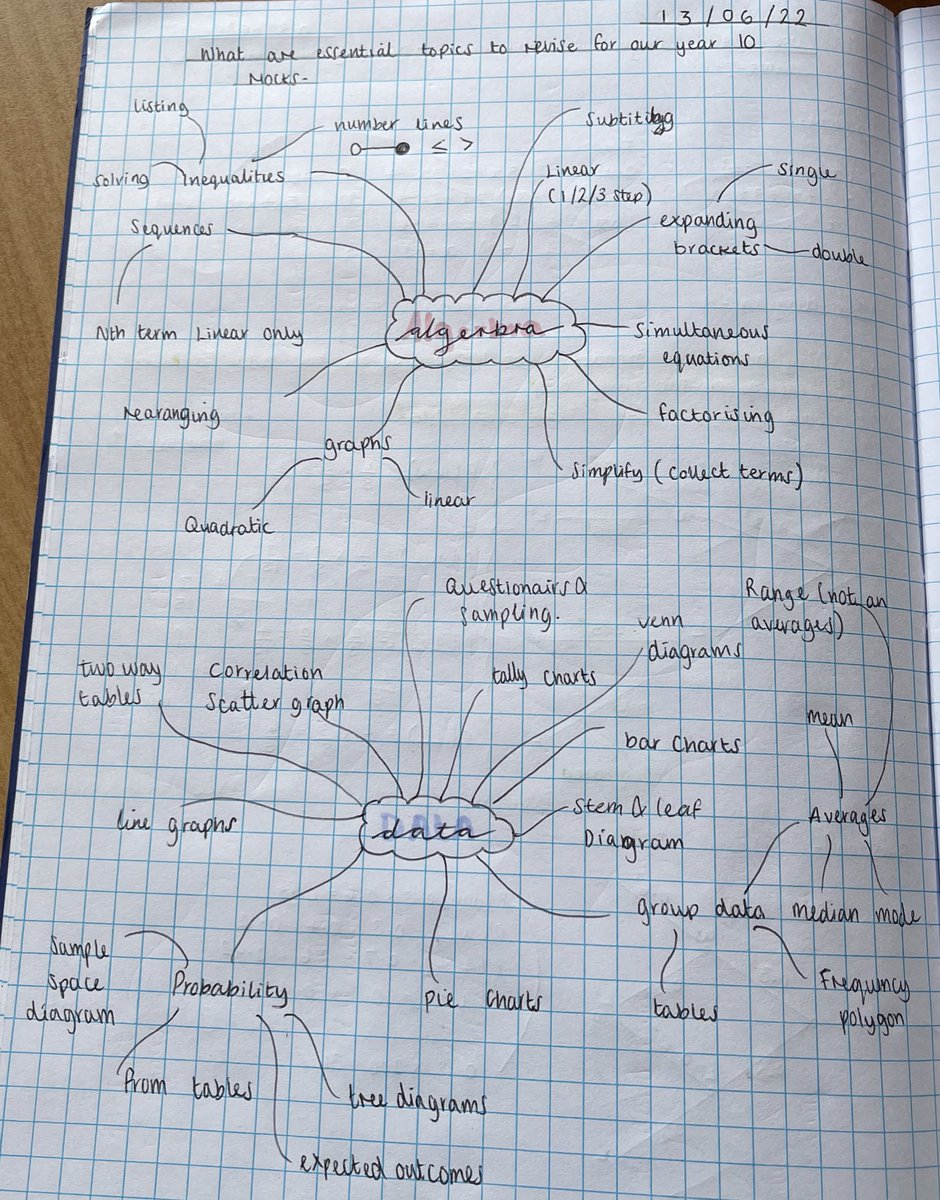 13/06/22
What are essential topics to revise for our year 10
Mocks-
listing
number lines
≤ >
solving Inequalities
Sequences
Nth term Linear only
rearanging
graphs
Quadratic
linear
Linear
(1/2/3 step)
single
expanding
brackets
double
algerbra
Simultaneous
equations
factorising
Simplify (collect terms)
Questionairs &
sampling.
Range (not an
averages)
venn
diagrams
two way
tables
Correlation
Scatter graph
tally charts
mean
bar charts
line graphs
data
Stem & leaf
Diagram
Averages
group data
median
mode
Sample
space
diagram
Probability
pie charts
tables
Frequncy
polygon
from tables
tree diagrams
expected outcomes